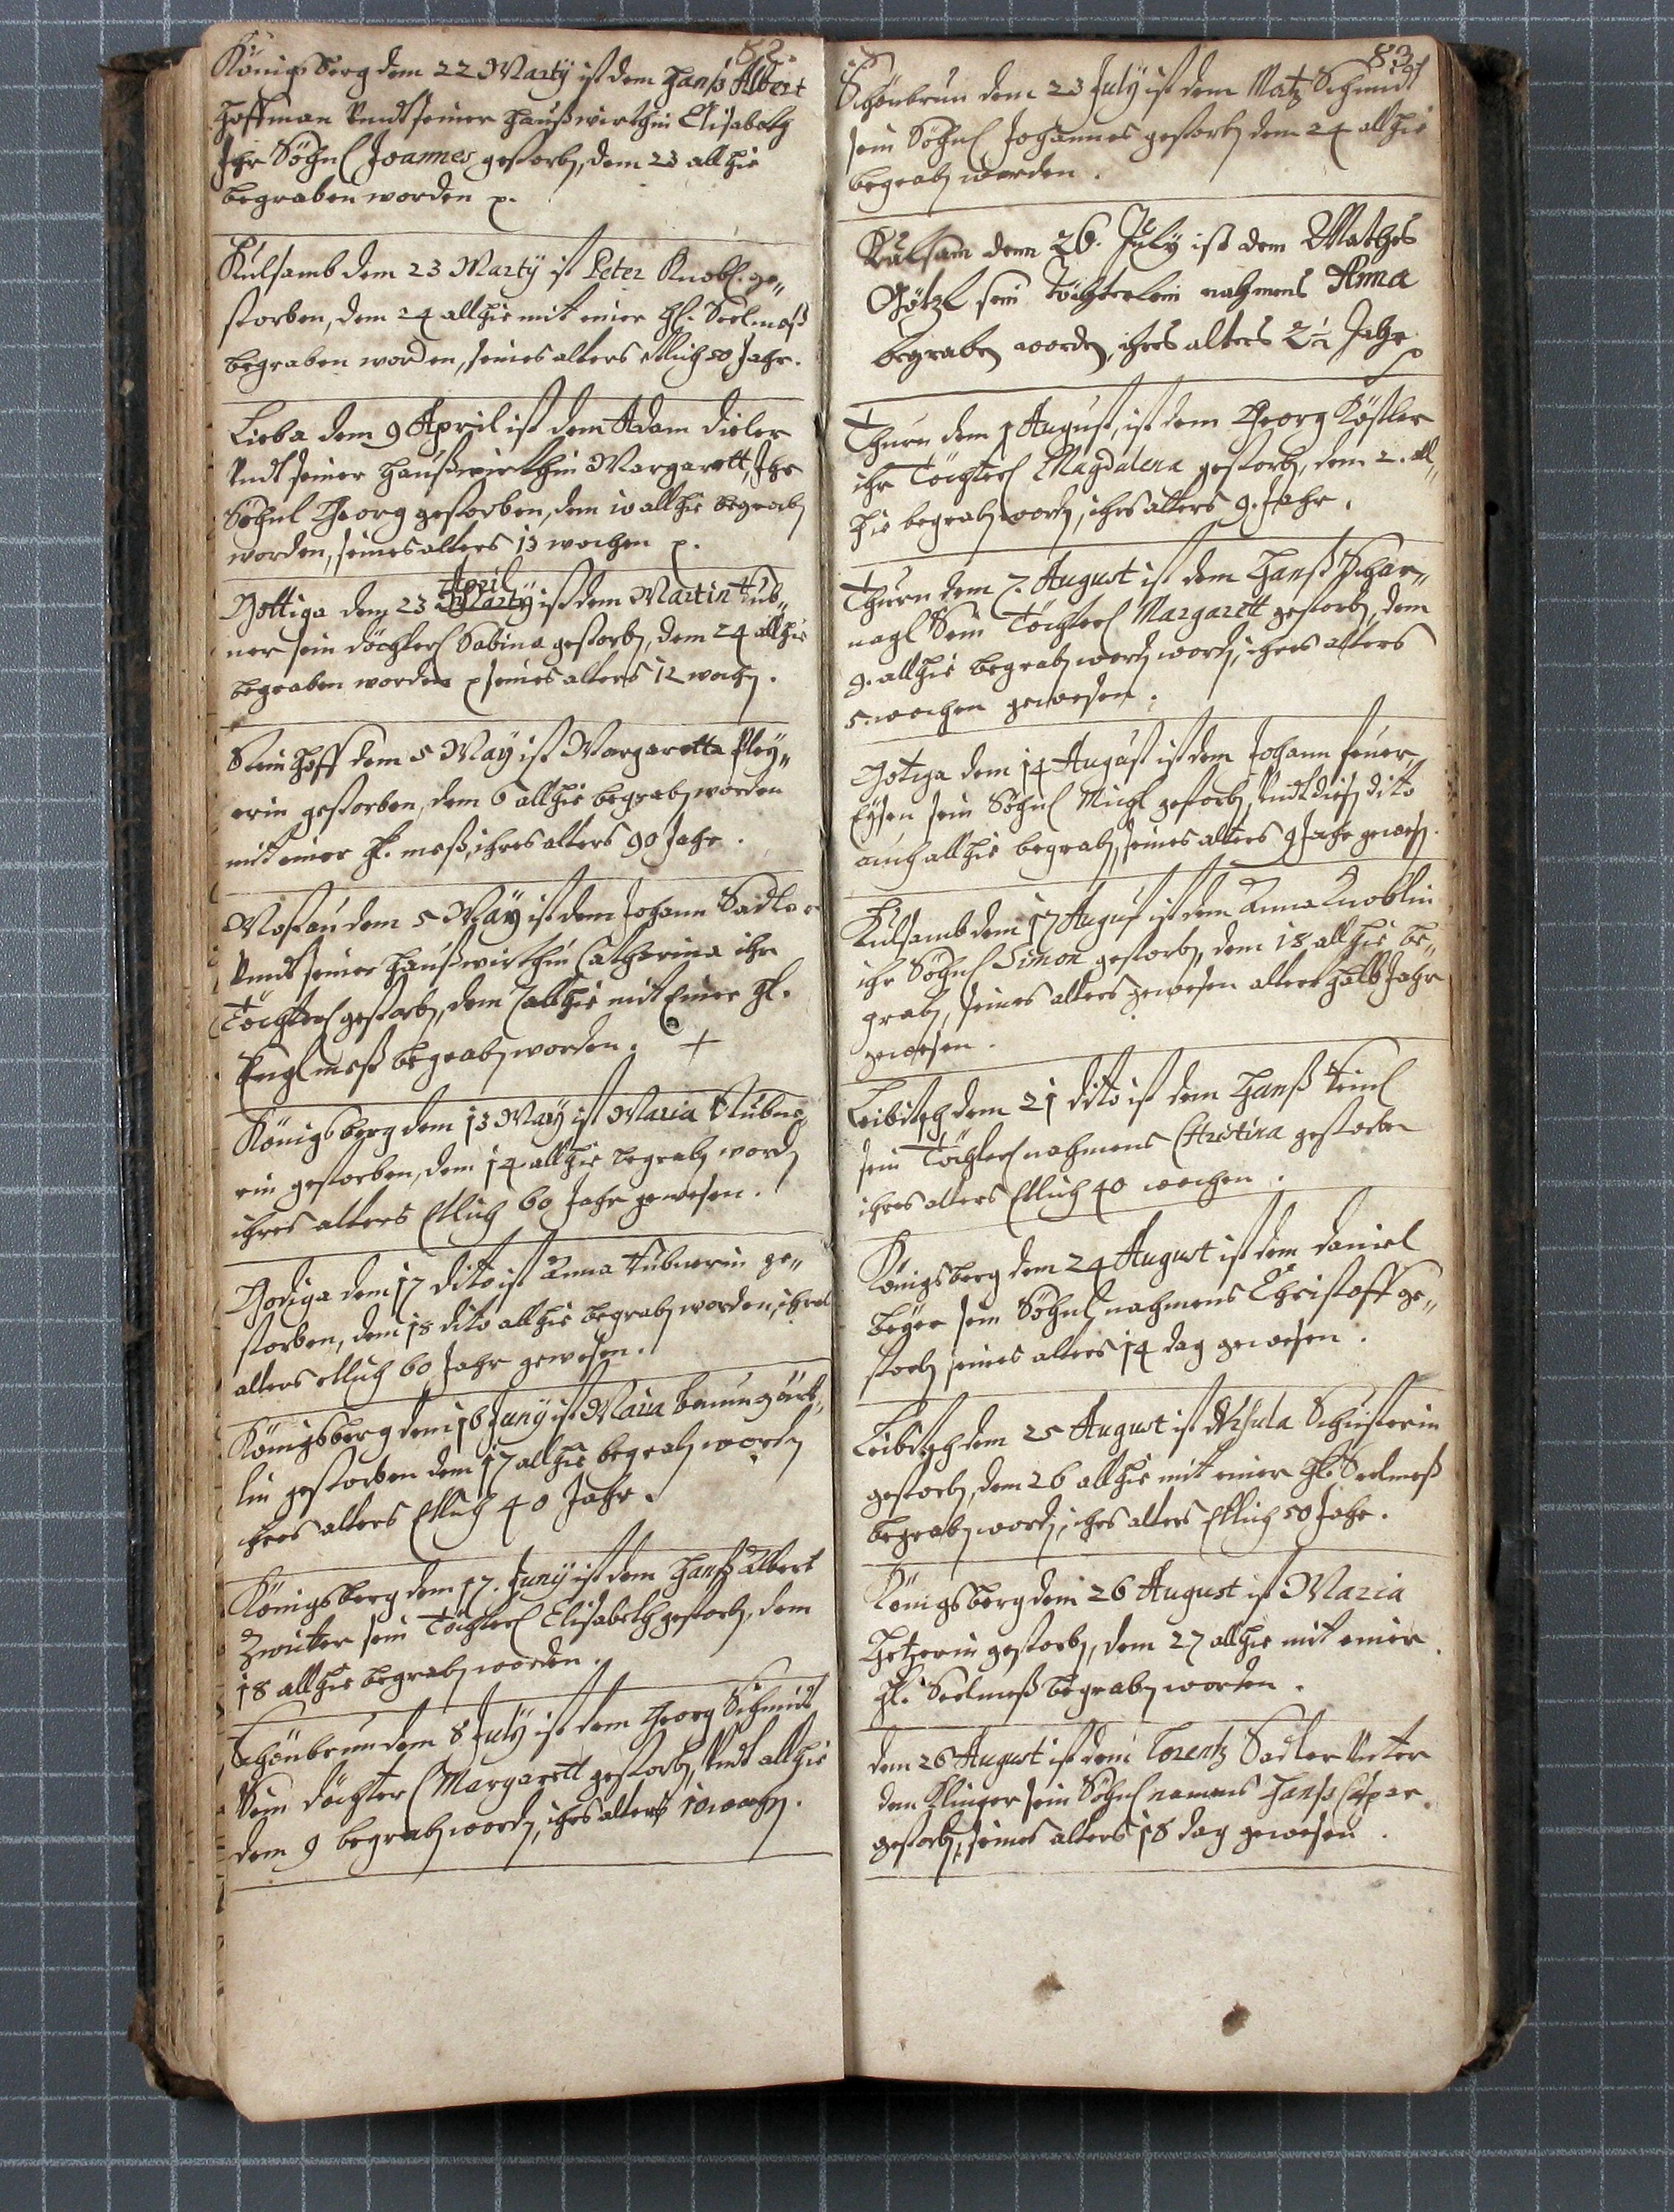 82.
Königsberg dem 22 Marty ist dem Hanß Albert
Hoffman Vndt seiner Haußwirthin Elisabeth
Ihr Söhnl Joannes gestorb, dem 23 allhie
begraben worden p.
Kulsamb dem 23 Marty ist Peter Knobl. ge„
storben, dem 24 allhie mit einer hl. Seelmeß
begraben worden, seines alters etlich 50 Jahr.
Lieba dem 9 April ist dem Adam Dieler
Vndt seiner Haußwirthin Margarett, Ihr
Söhnl Georg gestorben, dem 10 allhie begrab
worden, seines alters 13 wochen p.
April
Gottiga dem 23 Marty ist dem Martin Tüb„
ner sein döchterl Sabina gestorb, dem 24 allhie
begraben worden p seines alters 12 woch.
Steinhoff dem 5 May ist Margaretta Pley„
erin gestorben, dem 6 allhie begrab worden
mit einer hl. meß, ihres alters 90 Jahr.
Mostau dem 5 May ist dem Johann Sadler
Vndt seiner Haußwirthin Catharina ihr
Töchterl gestorb, dem 7 allhie mit Einer hl.
Englmeß begrab worden. +
Königsberg dem 13 May ist Maria Stübne„
rin gestorben, dem 14 allhie begrab word
ihres alters Etlich 60 Jahr gewesen.
Godiga dem 17 dito ist Anna Tübnerin ge„
storben, dem 18 dito allhie begrab worden, ihres
alters etlich 60 Jahr gewesen.
Königsberg dem 16 Juny ist Maria Baumgärt„
lin gestorben dem 17 allhie begrab word
ihres alters Etlich 40 Jahr.
Königsberg dem 17. Juny ist dem Hanß Albert
Zwinter sein Töchterl Elisabeth gestorb, dem
18 allhie begrab worden.
Schönbrun dem 8 July ist dem Georg Schmidt
Sein döchterl Margarett gestorb, Vndt allhie
dem 9 begrab word, ihres alters 10 woch.
83
Schönbrun dem 23 July ist dem Matz Schmidt
sein Söhnl Johannes gestorb dem 24 allhie
begrab worden.
Kulsam dem 26. July ist dem Mathes
Götzl sein Töchterlein nahmens Anna
begraben worden, ihres alters 2½ Jahr
Thurn dem 1 August, ist dem Georg Köstler
ihr Töchterl Magdalena gestorb, dem 2. all„
hie begrab word, ihres alters 9. Jahr.
Thurn dem 7. August ist dem Hanß Schar„
nagl Sein Töchterl Margarett gestorb, dem
9. allhie begrab word word, ihres alters
5. wochen gewesen.
Gotiga dem 14 August ist dem Johann feuer„
Eysen sein Söhnl Michl gestorb, Vndt dies dito
auch allhie begrab, seines alters 9 Jahr gewes.
Kulsamb dem 17 August ist dem Anna Knoblin
ihr Söhnl Simon gestorb, dem 18 allhie be„
grab, seines alters gewesen alters halb Jahr
gewesen.
Leibitsch dem 21 dito ist dem Hanß
sein Töchterl nahmens Christina gestorben
ihres alters Etlich 40 wochen.
Königsberg dem 24 August ist dem Daniel
Beyer sein Söhnl nahmens Christoff ge„
storb seines alters 14 dag gewesen.
Leibitsch dem 25 August ist Ursula Schusterin
gestorb, dem 26 allhie mit einer hl. Seelmeß
begrab word, ihres alters Etlich 50 Jahr.
Königsberg dem 26 August ist Maria
Hetzerin gestorb, dem 27 allhie mit einer
hl. Seelmeß begrab worden.
dem 26 August ist dem Lorentz Sadler Vnter
dem Klinger sein Söhnl namens Hanß Caspar
gestorb, seines alters 18 dag gewesen.